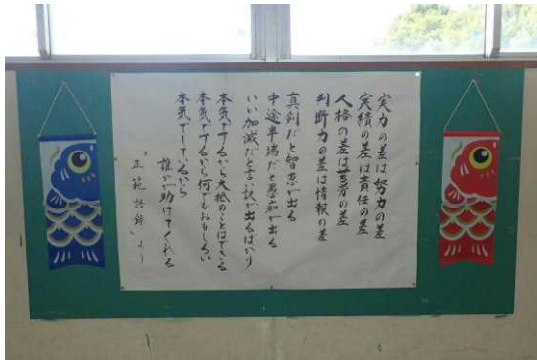 実力の差は努力の差
実績の差は責任の差
人格の差は苦労の差
判断力の差は情報の差
真剣だと智恵が出る
中途半端だと愚痴が出る
いい加減だと言い訳が出るばかり
本気でするから大抵のことはできる
本気でするから何でもおもしろい
本気でしているから
誰かが助けてくれる